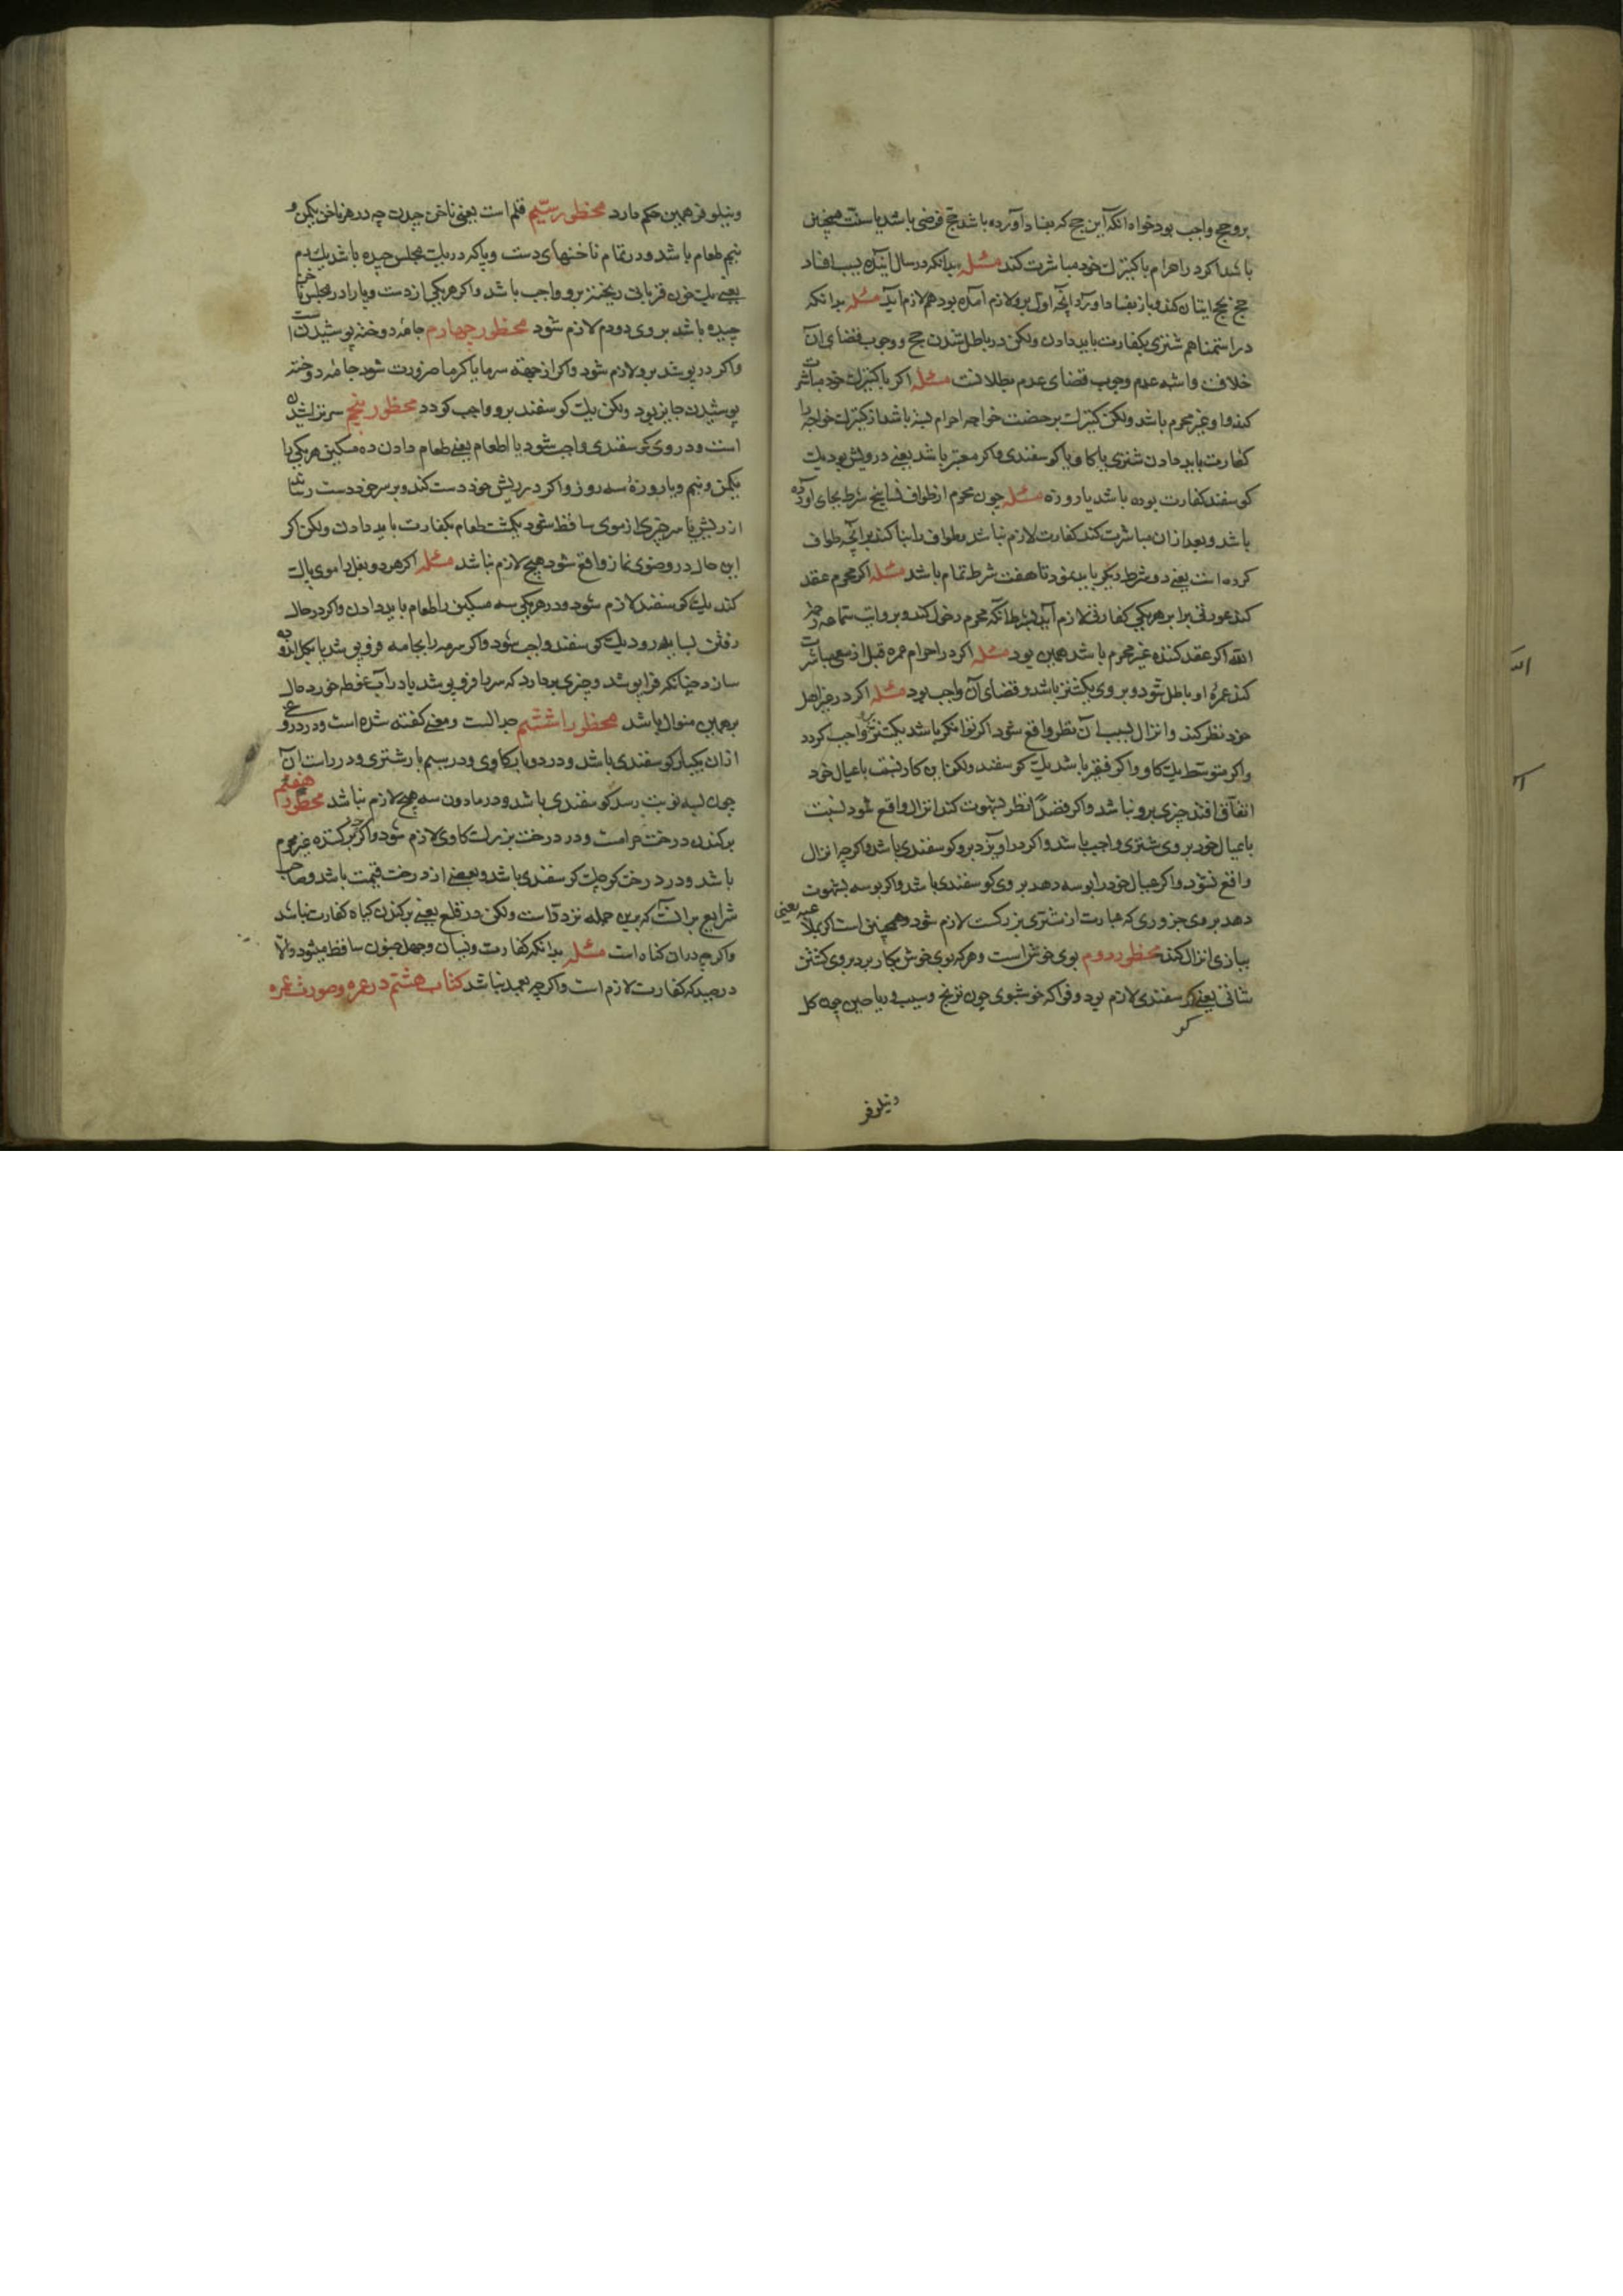 برو حج واجب بود خواه آنکه این حج که بفساد آورده باشد حج فرضی باشد یا سنت همچنین
باشد اکر در احرام با کنیزک خود مباشرت کند مسئله بدانکه در سال آینده بسبب افساد
حج بحج اتیان کند و باز بفساد آورد آنچه اول برو لازم آمده بود هم لازم آید مسئله بدانکه
در استمنا هم شتری بکفارت باید دادن ولکن در باطل شدن حج و وجوب قضای آن
خلاف و اشبه عدم وجوب قضای عدم بطلانست مسئله اکر با کنیزک خود مباشرت
کند و او غیر محرم باشد ولکن کنیزک برخصت خواجه احرام بسته باشد از کنیزک خواجه را
کفارت باید دادن شتری یا کاو یا کوسفندی و اکر معسر باشد یعنی درویش بود یک
کوسفند کفارت بوده باشد یا روزه مسئله چون محرم از طواف نسا پنج شرط بجای آورده
باشد و بعد از آن مباشرت کند کفارت لازم نباشد و طواف را بنا کند بر آنچه طواف
کرده است یعنی دو شرط دیکر باید نمود تا هفت شرط تمام باشد مسئله اکر محرم عقد
کند عورتی برابر هر یکی کفارتی لازم آید بشرط آنکه محرم دخول کند و بروایت سماعه رحمه
الله اکر عقد کننده غیر محرم باشد همین بود مسئله اکر در احرام عمره قبل از سعی مباشرت
کند عمره او باطل شود و بروی یکشتر باشد و قضای آن واجب بود مسئله اکر در غیر اهل
خود نظر کند و انزال بسبب آن نظر واقع شود اکر توانکر باشد یکشتر برو واجب کردد
و اکر متوسط یک کاو و اکر فقیر باشد یک کوسفند ولکن این کار نسبت با عیال خود
اتفاق افتد چیزی برو نباشد و اکر قصداً نظر بشهوت کند انزال واقع شود نسبت
با عیال خود بروی شتری واجب باشد و اکر در آویزد برو کوسفندی باشد و اکر چه انزال
واقع نشود و اکر عیال خود را بوسه دهد بروی کوسفندی باشد و اکر بوسه بشهوت
دهد بروی جزوری که عبارت از شتری بزرکست لازم شود و همچنین است اکر بملاعبه یعنی
ببازی انزال کند محظور دوم بوی خوش است و هر که بوی خوش بکار برد بروی کشتن
شاتی یعنی کوسفندی لازم بود و فواکه خوشبوی چون ترنج و سیب و ریاحین چون کل
کو
و نیلوفر
و نیلوفر همین حکم دارد محظور سیم قلم است یعنی ناخن چیدن چه در هر ناخن یکمن و
نیم طعام باشد و در تمام ناخنهای دست و پا که در یک مجلس چیده باشد یک دم
یعنی یک خون قربانی ریختن برو واجب باشد و اکر هر یکی از دست و پا را در مجلس ناخن
چیده باشد بروی دو دم لازم شود محظور چهارم جامه دوخته پوشیدن است
و اکر در پوشد برو لازم شود و اکر از جهة سرما یا کرما ضرورت شود جامه دوخته
پوشیدن جایز بود ولکن یک کوسفند برو واجب کردد محظور پنجم سر تراشیدن
است و در وی کوسفندی واجب شود یا اطعام یعنی طعام دادن ده مسکین هر یکی را
یکمن و نیم و یا روزه سه روز و اکر در ریش خود دست کند و بر سر خود دست رساند
از ریش یا سر چیزی از موی ساقط شود یکمشت طعام بکفارت باید دادن ولکن اکر
این حال در وضوی نماز واقع شود هیچ لازم نباشد مسئله اکر هر دو بغل را موی پاک
کند یک کوسفند لازم شود و در هر یکی سه مسکین را طعام باید دادن و اکر در حال
رفتن بسایه رود یک کوسفند واجب شود و اکر سر را بجامه فرو پوشد یا بکل اندوده
سازد چنانکه فرا پوشد و چیزی بردارد که سر را فرو پوشد یا در آب غوطه خورد حال
برهمین منوال باشد محظورات ششم جدالست و معنی کفته شده است و در دروغی
از آن یکبار کوسفندی باشد و در دو بار کاوی و در سیم بار شتری و در راست آن
چون بسه نوبت رسد کوسفندی باشد و در مادون سه هیچ لازم نباشد محظورات هفتم
برکندن درخت حرامست و در درخت بزرک کاوی لازم شود و اکر چه برکننده غیر محرم
باشد و در درخت کوچک کوسفندی باشد و بعضی از درخت قیمت باشد و صاحب
شرایع بر آنست که برین جمله تردد است ولکن در قلع یعنی برکندن کیاه کفارت نباشد
و اکر چه در آن کناه است مسئله بدانکه کفارت و نسیان و جهل و جنون ساقط میشود و الا
در صید که کفارت لازم است و اکر چه بعمد نباشد کتاب هشتم در عمره و صورت عمره